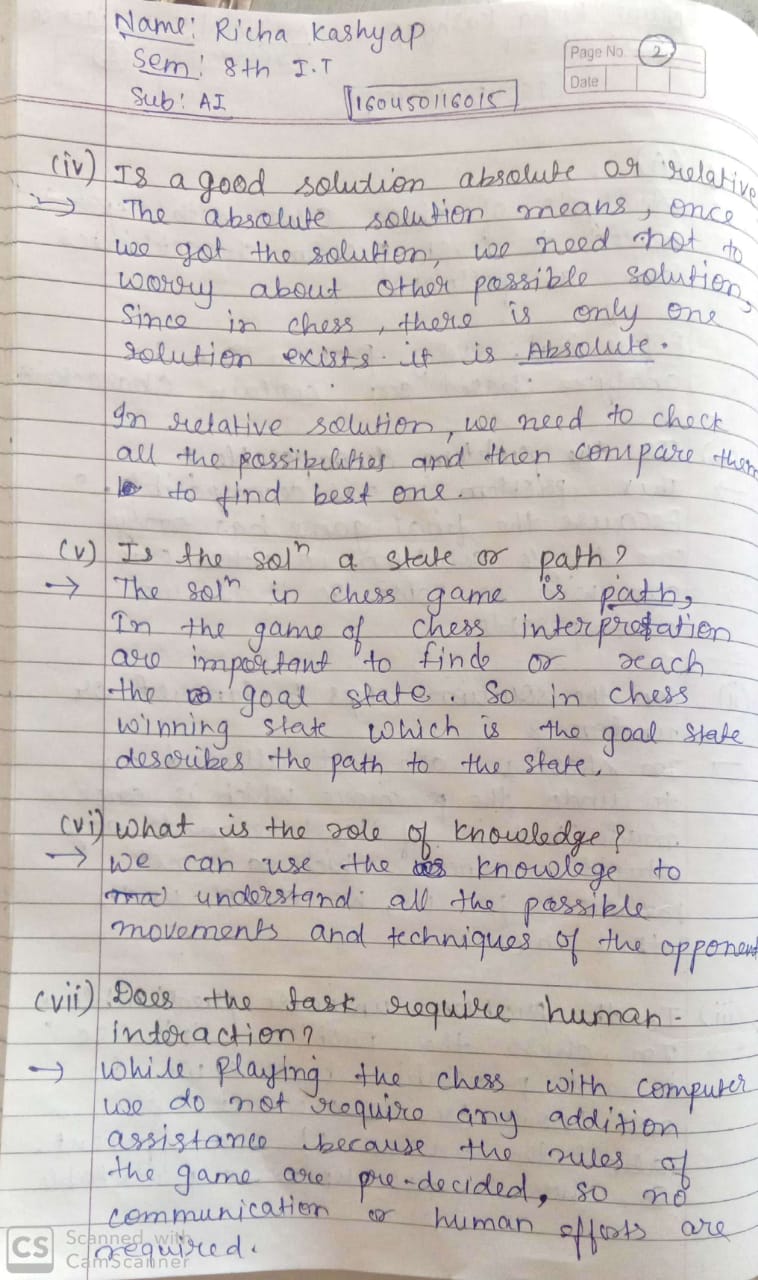 Name: Richa Kashyap
Sem: 8th I.T
Sub: AI
160450116015
Page No. 2
Date
(iv) Is a good solution absolute or relative
→ The absolute solution means, once
we got the solution, we need not to
worry about other possible solution,
Since in chess, there is only one
solution exists. it is Absolute.
In relative solution, we need to check
all the possibilities and then compare them
to find best one.
(v) Is the solⁿ a state or path?
→ The solⁿ in chess game is path,
In the game of chess interpretation
are important to find or reach
the goal state. So in chess
winning state which is the goal state
describes the path to the state.
(vi) What is the role of knowledge?
→ We can use the knowlege to
understand all the possible
movements and techniques of the opponent
(vii) Does the task require human-
interaction?
→ While playing the chess with computer
we do not require any addition
assistance because the rules of
the game are pre-decided, so no
communication or human efforts are
required.
CS Scanned with
CamScanner